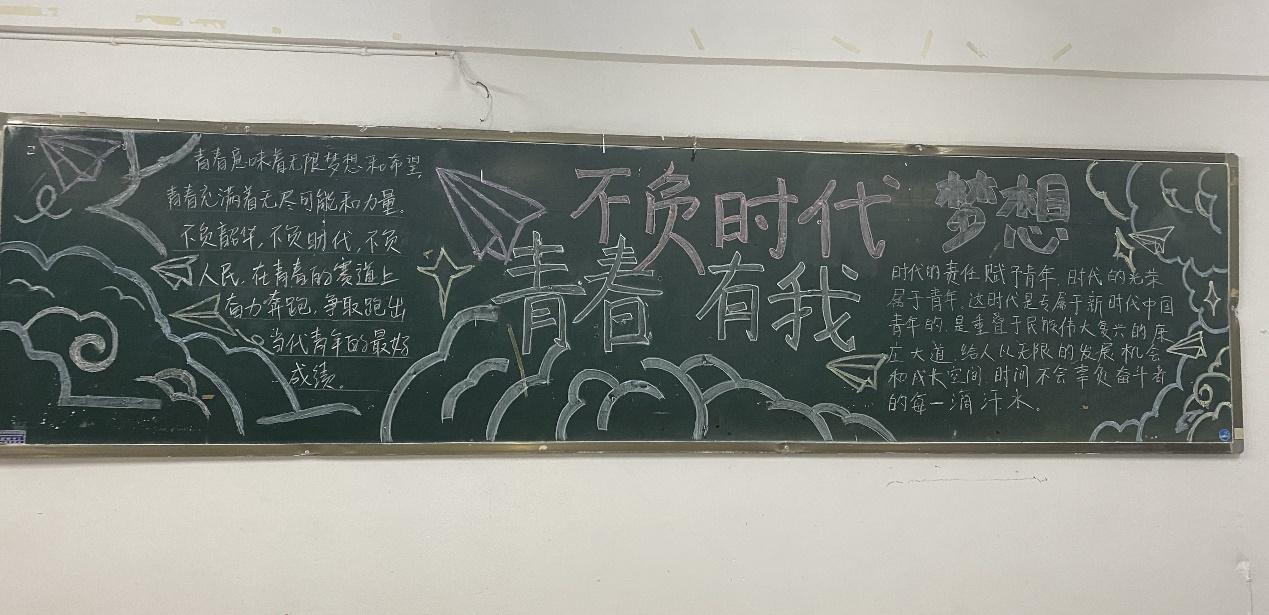 青春意味着无限梦想和希望
青春充满着无尽可能和力量。
不负韶华,不负时代,不负
人民,在青春的赛道上
奋力奔跑,争取跑出
当代青年的最好
成绩。
不负时代
青春 有我
梦想
时代的责任赋予青年,时代的光荣
属于青年,这时代是专属于新时代中国
青年的,是重叠于民族伟大复兴的康
庄大道,给人以无限的发展机会
和成长空间,时间不会辜负奋斗者
的每一滴汗水。